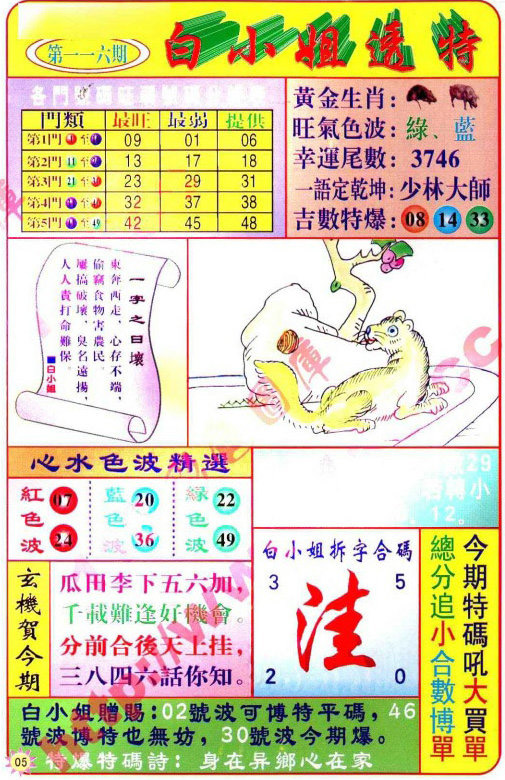 第一一六期
白小姐透特
門類 最旺 最弱 提供
第1門 09 01 06
第2門 13 17 18
第3門 23 29 31
第4門 32 37 38
第5門 42 45 48
黃金生肖:
旺氣色波: 綠、藍
幸運尾數: 3746
一語定乾坤: 少林大師
吉數特爆: 08 14 33
一字之曰壞
東奔西走、心存不端,
偷竊食物害農民。
屢搞破壞、臭名遠揚,
人人責打命難保。
■白小姐
心水色波精選
紅色波 07 24
藍色波 20 36
綠色波 22 49
29
若轉小
。12。
玄機賀今期
瓜田李下五六加,
千載難逢好機會。
分前合後天上挂,
三八四六話你知。
白小姐拆字合碼
3 5
洼
2 0
今期特碼吼大買單
總分追小合數博單
白小姐贈賜: 02號波可博特平碼, 46
號波博特也無妨, 30號波今期爆。
05 特爆特碼詩: 身在异鄉心在家